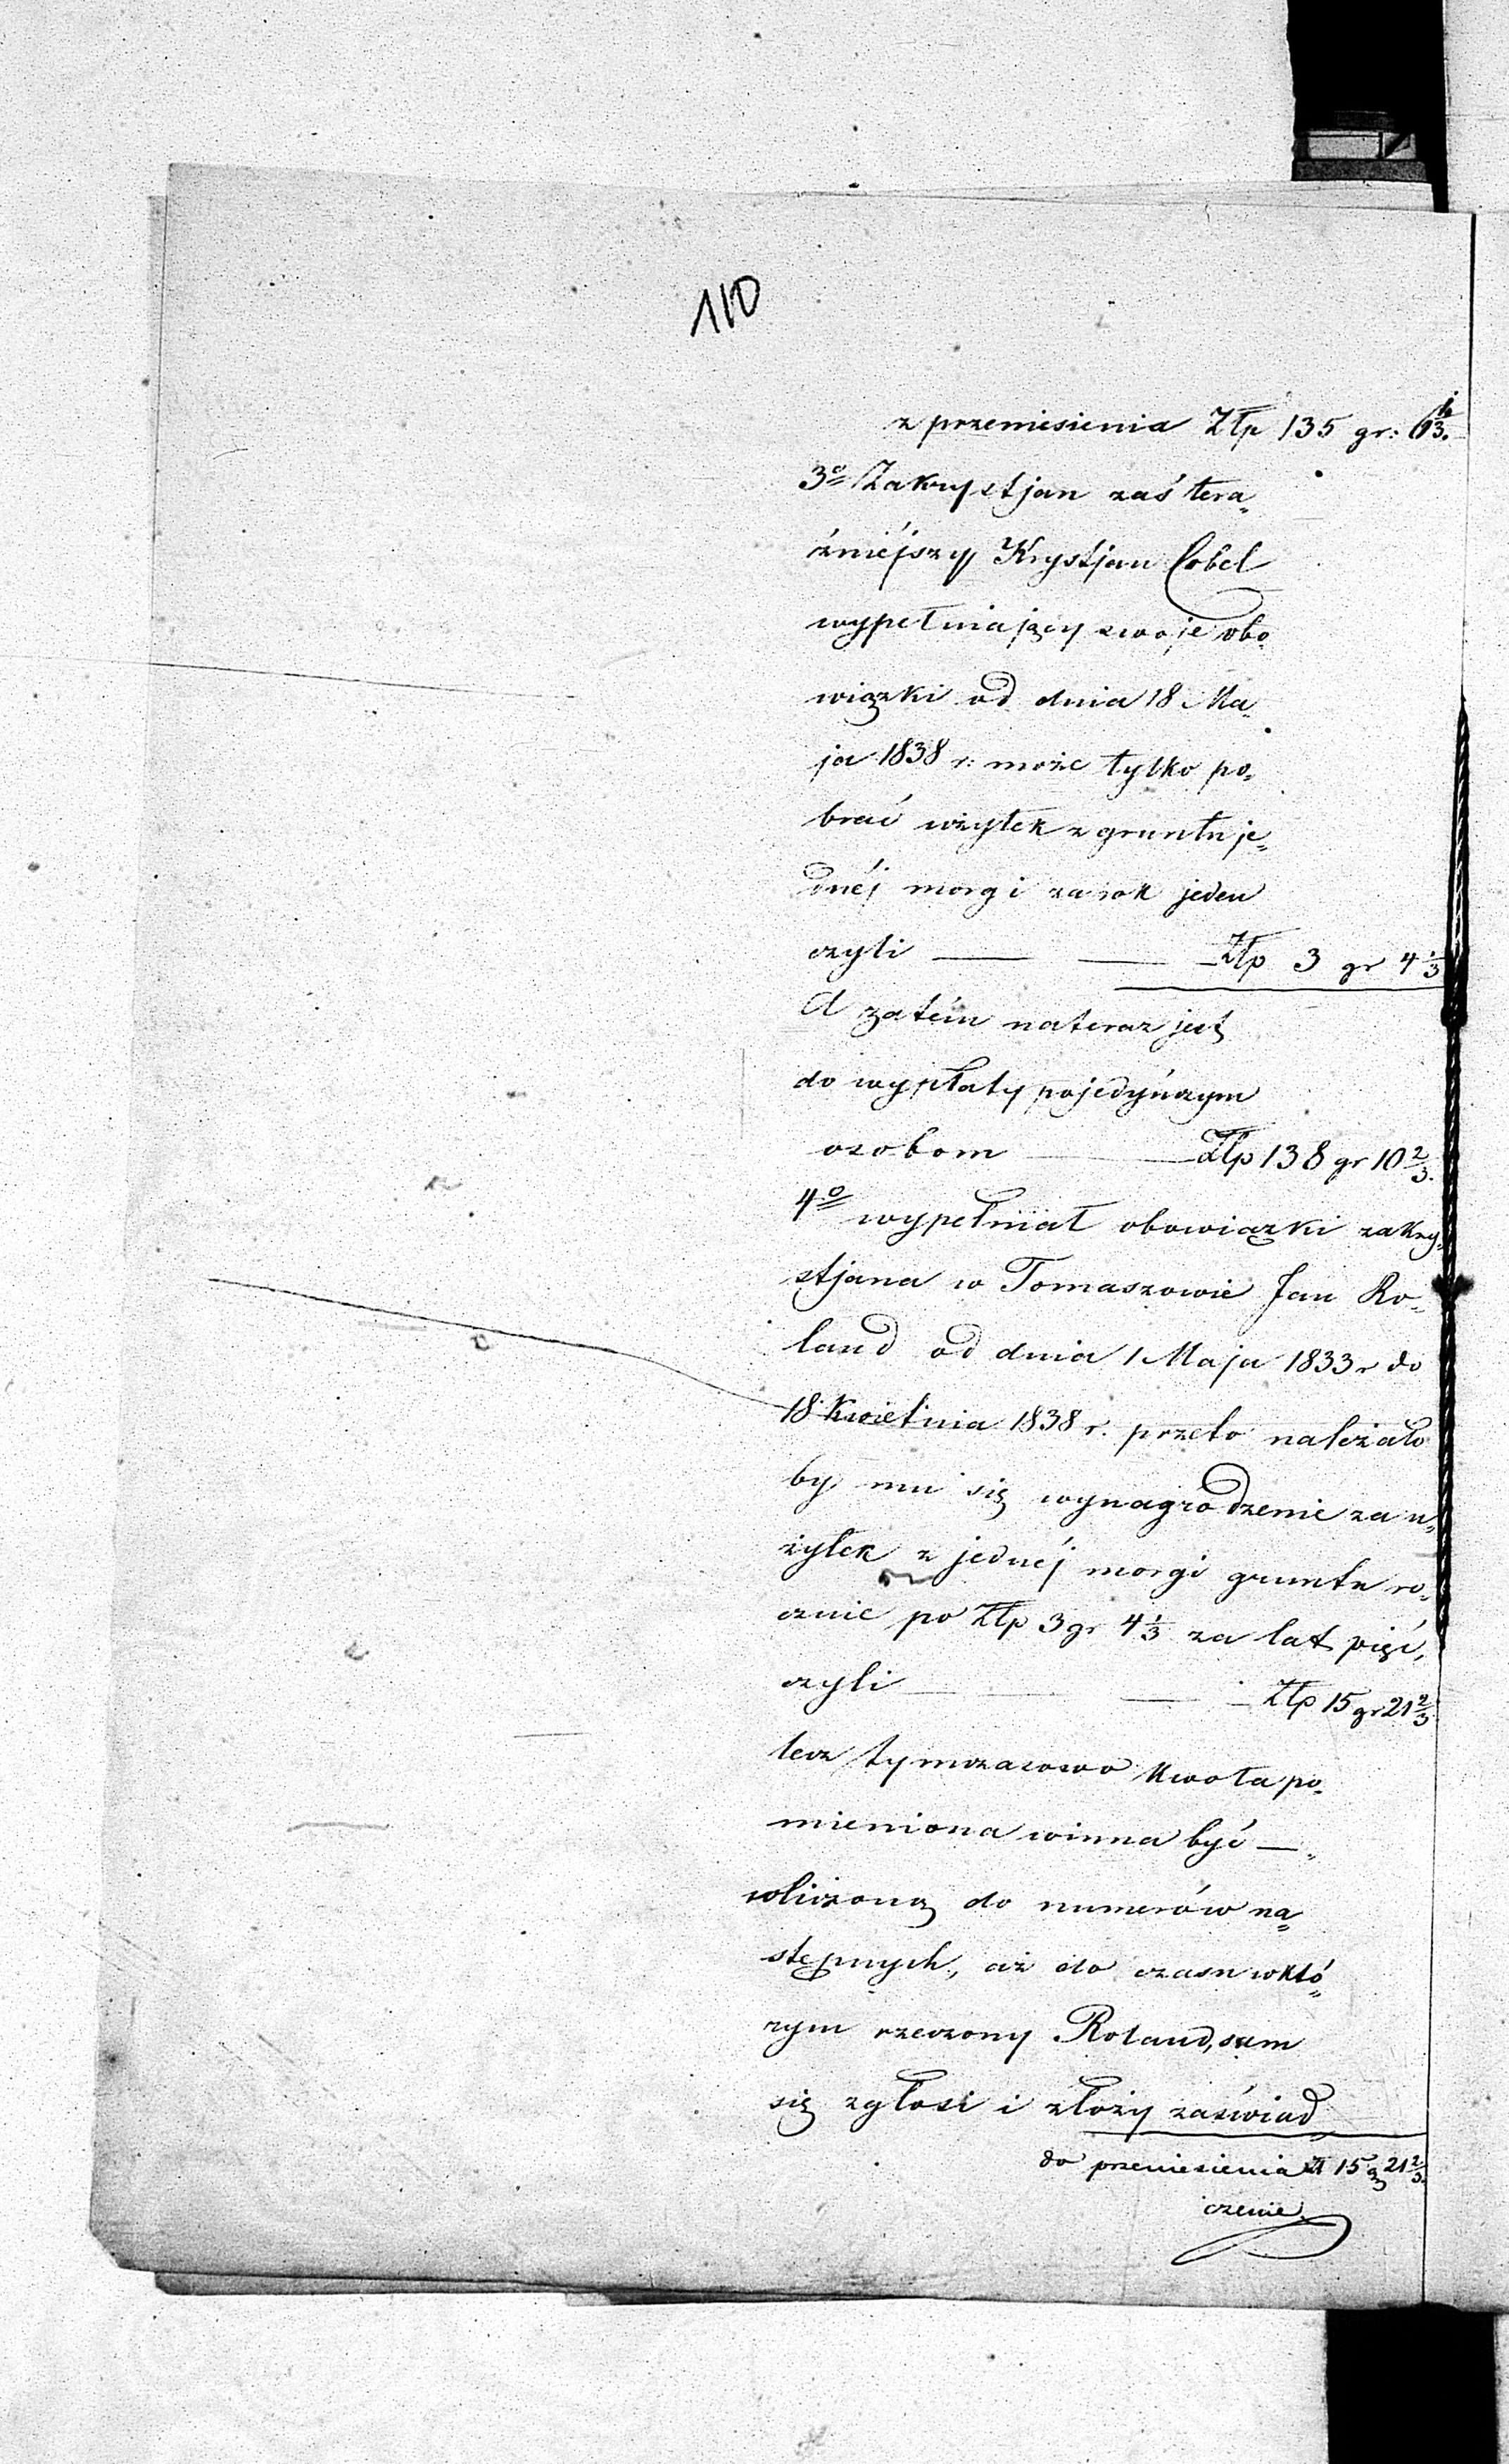 110
z przeniesienia Złp 135 gr: 6 1/3.
3º Zakrystjan zaś tera„
źniéjszy Krystjan Cobel
wypełniający swoje obo„
wiązki od dnia 18 Ma„
ja 1838 r: może tylko po„
brać użytek z gruntu je„
dnéj morgi za rok jeden
czyli — — Złp 3 gr 4 1/3
A zatém na teraz jest
do wypłaty pojedyńczym
osobom — Złp 138 gr 10 2/3.
4º wypełniał obowiązki zakry„
stjana w Tomaszowie Jan Ro„
land od dnia 1 Maja 1833 r do
18 Kwietnia 1838 r. przeto należało
by mu się wynagrodzenie za u„
żytek z jednéj morgi gruntu ro„
cznie po Złp 3 gr 4 1/3 za lat pięć,
czyli — — — Złp 15 gr 21 2/3
lecz tymczasowo kwota po„
mieniona winna być —„
wliczoną do numerów na„
stępnych, aż do czasu w któ„
rym rzeczony Roland, sam
się zgłosi i złoży zaświad„
do przeniesienia Zł 15 g 21 2/3.
czenie